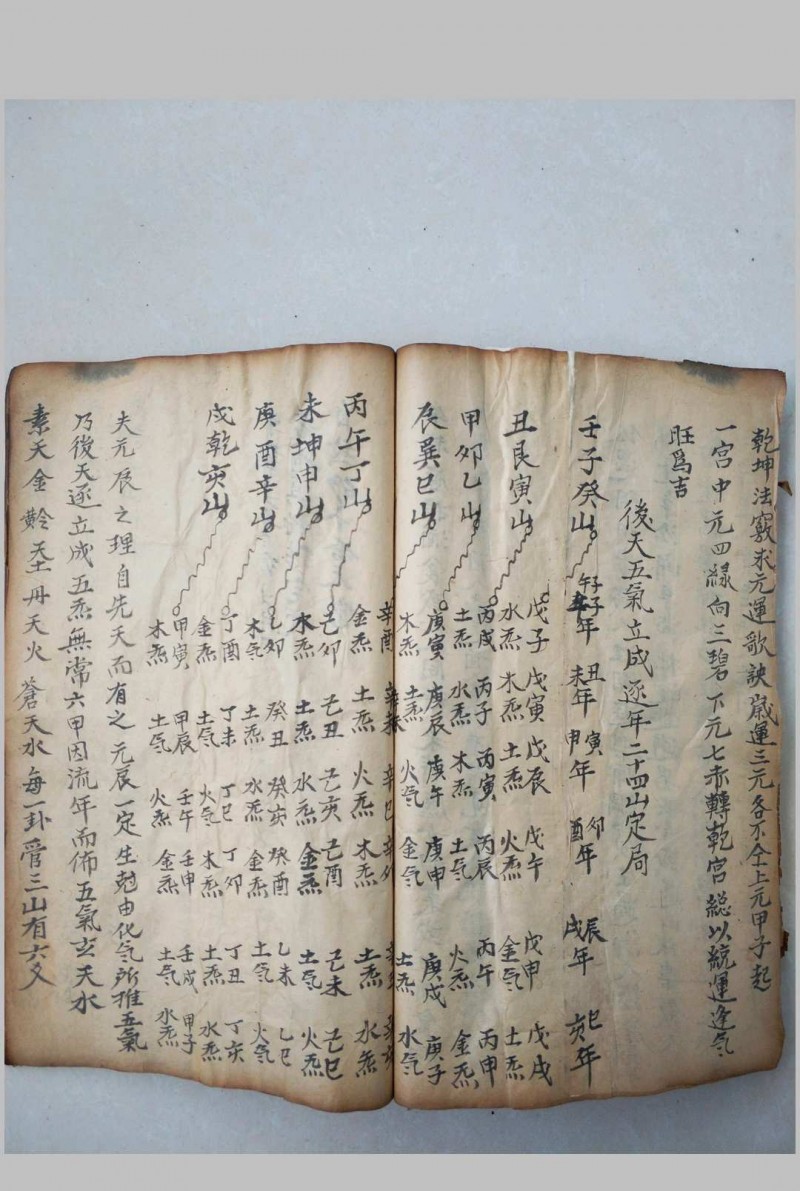 乾坤法竅求元運歌訣歲運三元各不仝上元甲子起
一宮中元四緑向三碧下元七赤轉乾宮総以統運逢气
旺爲吉
後天五氣立成逐年二十四山定局
壬子癸山
子午年 丑未年 寅申年 卯酉年 辰戌年 巳亥年
丑艮寅山
戊子 戊寅 戊辰 戊午 戊申 戊戌
水炁 木炁 土炁 火炁 金气 土炁
甲卯乙山
丙戌 丙子 丙寅 丙辰 丙午 丙申
土炁 水炁 木炁 土气 火炁 金炁
辰巽巳山
庚寅 庚辰 庚午 庚申 庚戌 庚子
木炁 土炁 火气 金气 土炁 水气
丙午丁山
辛酉 辛未 辛巳 辛卯 辛亥
金炁 土炁 火炁 木炁 土炁 水炁
未坤申山
己卯 己丑 己亥 己酉 己未 己巳
木炁 土炁 水炁 金炁 土气 火炁
庚酉辛山
乙卯 癸丑 癸亥 癸酉 乙未 乙巳
木气 土炁 水炁 金炁 土气 火气
戌乾亥山
丁酉 丁未 丁巳 丁卯 丁丑 丁亥
金炁 土气 火气 木炁 土炁 水炁
甲寅 甲辰 壬午 壬申 壬戌 甲子
木炁 土气 火炁 金炁 土气 水炁
夫元辰之理自先天而有之元辰一定生尅由化气所推五氣
乃後天逐立成五炁無常六甲因流年而佈五氣玄天水
素天金黅天土丹天火蒼天水每一卦管三山有六爻